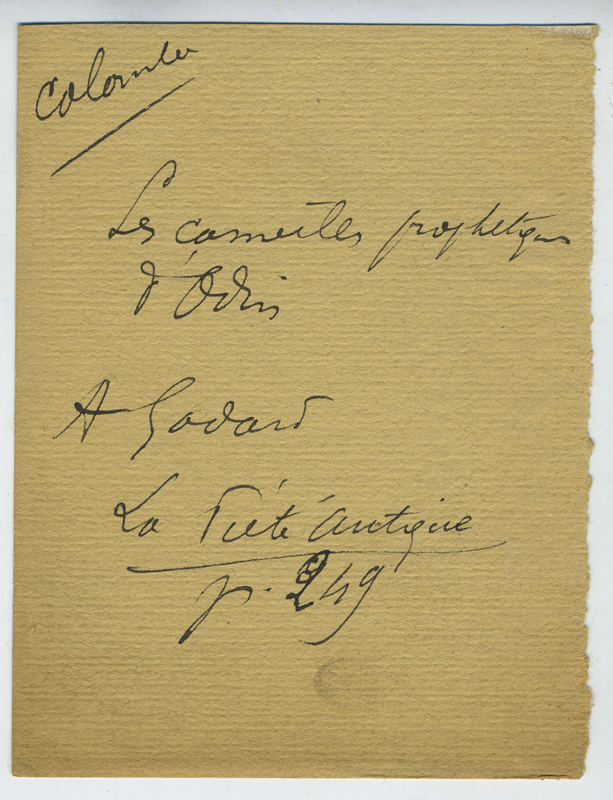 Colombe
Les corneilles prophétiques
d'Odin
A Godard
La Piété Antique
p. 249